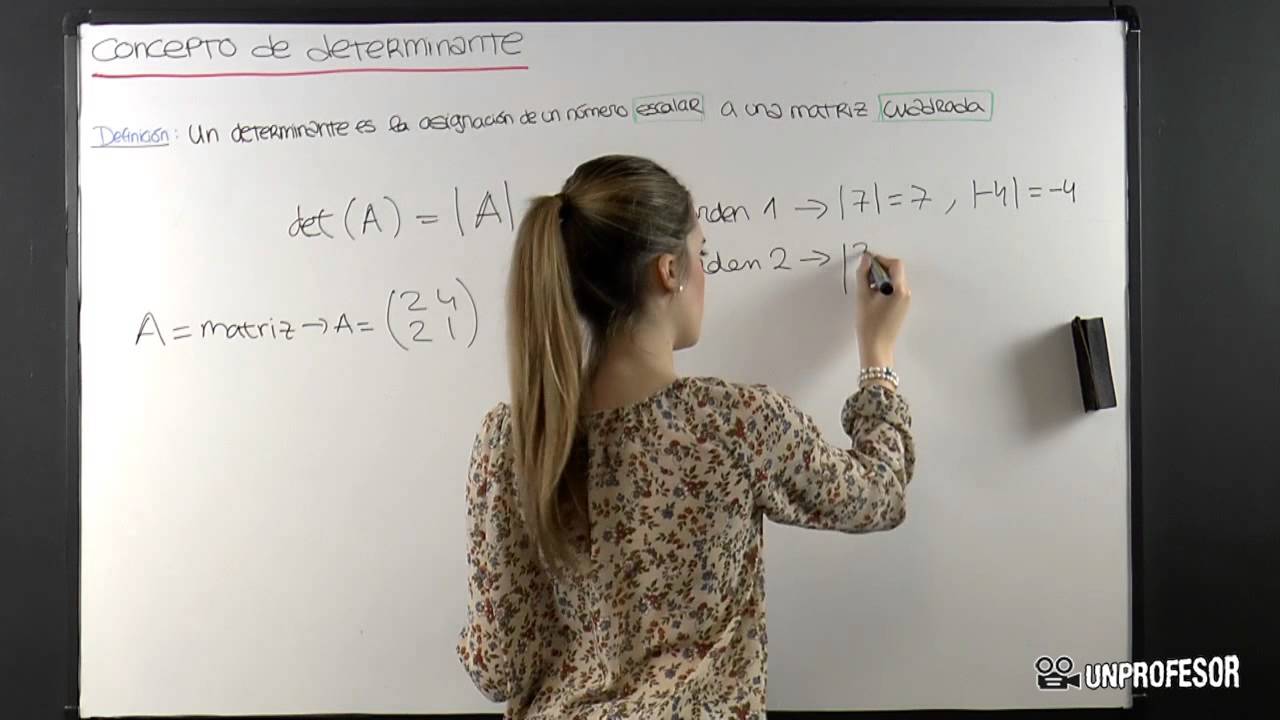 CONCEPTO de determinante
Definición: Un determinante es la asignación de un número escalar a una matriz cuadrada
det (A) = |A|
rden 1 → |7| = 7 , |-4| = -4
den 2 → |
A = matriz → A = (2 4
2 1)
UNPROFESOR